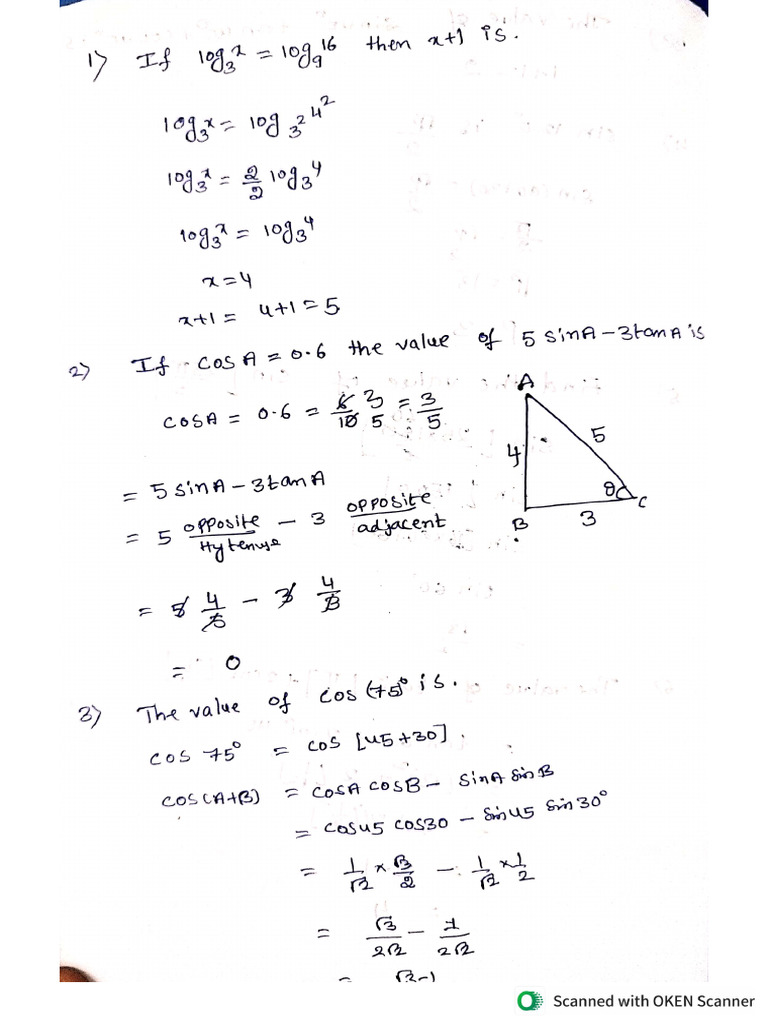 1) If log₃ˣ = log₉¹⁶ then x+1 is.
log₃ˣ = log₃² 4²
log₃ˣ = 2/2 log₃⁴
log₃ˣ = log₃⁴
x = 4
x+1 = 4+1 = 5
2) If cos A = 0.6 the value of 5 sinA – 3tanA is
cosA = 0.6 = 6/10 3/5 = 3/5
A
4
5
θ
B
3
C
= 5 sinA – 3tanA
= 5 opposite/Hytenuse – 3 opposite/adjacent
= 5 4/5 – 3 4/3
= 0
3) The value of cos (75)° is.
cos 75° = cos [45+30].
cos(A+B) = cosA cosB – sinA sinB
= cos45 cos30 – sin45 sin30°
= 1/√2 × √3/2 – 1/√2 × 1/2
= √3/2√2 – 1/2√2
= √3-1
Scanned with OKEN Scanner